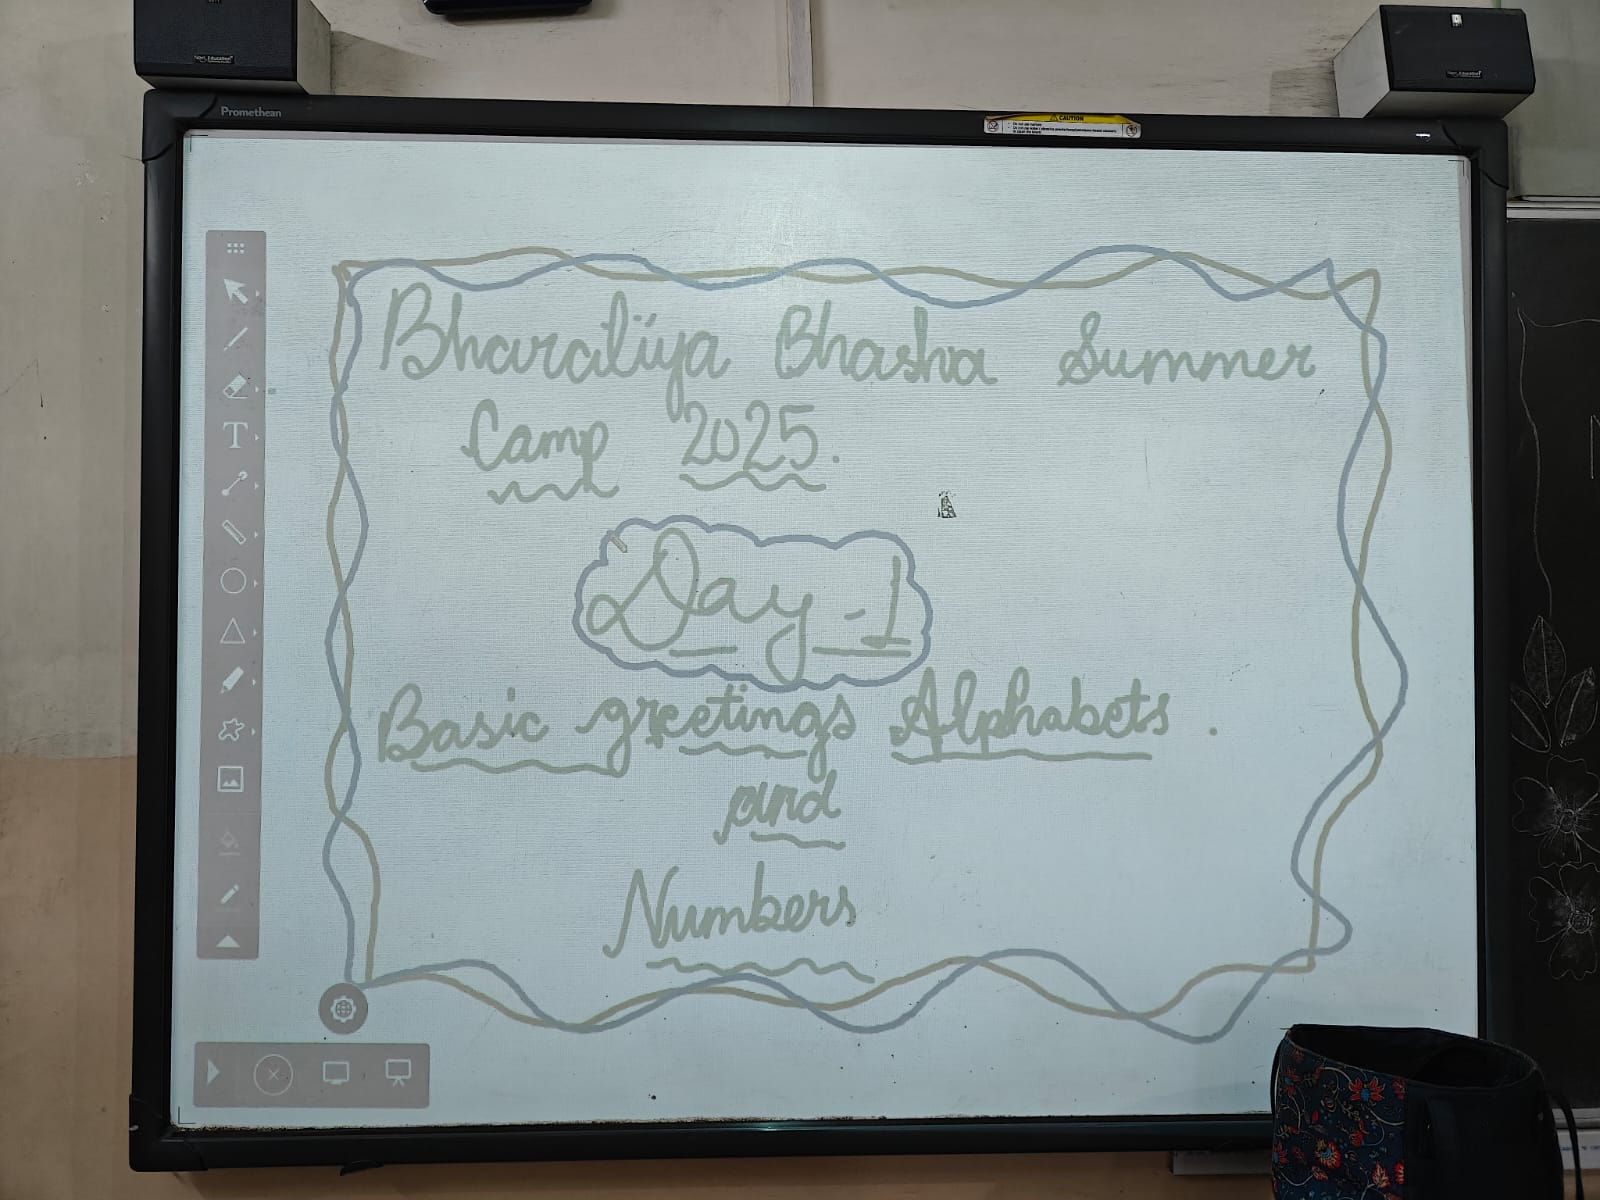 Promethean
CAUTION
Bharatiya Bhasha Summer
Camp 2025.
Day-1
Basic greetings Alphabets.
and
Numbers